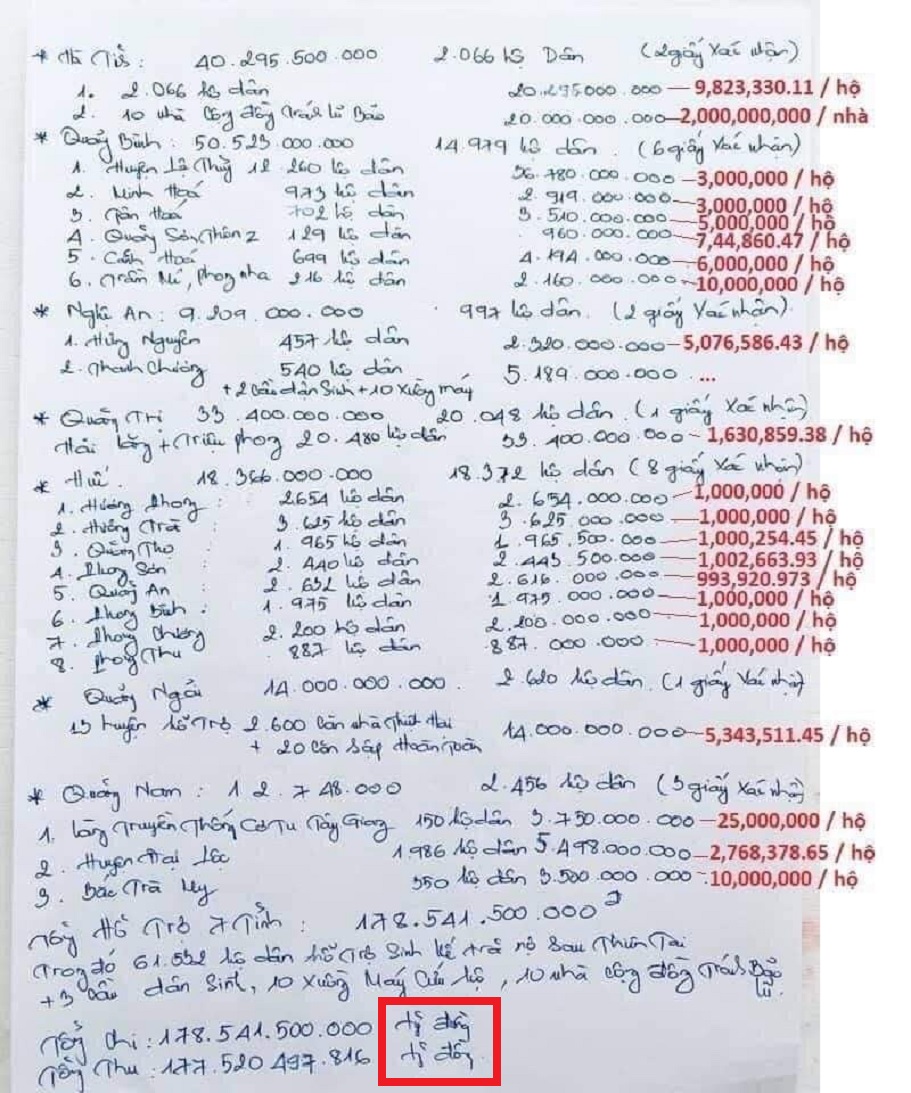 * Hà Tĩnh : 40.295.500.000 2.066 hộ Dân (2 giấy xác nhận)
1. 2.066 hộ dân 20.295000.000 — 9,823,330.11 / hộ
2. 10 nhà Cộng đồng Tránh lũ Bão 20.000.000.000 — 2,000,000,000 / nhà
* Quảng Bình : 50.523.000.000 14.979 hộ dân. (6 giấy xác nhận)
1. Huyện Lệ Thủy 12 260 hộ dân 36.780.000.000 — 3,000,000 / hộ
2. Minh Hoá 973 hộ dân 2.919.000.000 — 3,000,000 / hộ
3. Tân Hoá 702 hộ dân 3.510.000.000 — 5,000,000 / hộ
4. Quảng Sơn, Thôn 2 129 hộ dân 960.000.000 — 7,44,860.47 / hộ
5. Cảnh Hoá 699 hộ dân 4.194.000.000 — 6,000,000 / hộ
6. Trầm Mé, phong nha 216 hộ dân 2.160.000.000 — 10,000,000 / hộ
* Nghệ An : 9.209.000.000 997 hộ dân. (2 giấy xác nhận).
1. Hưng Nguyên 457 hộ dân 2.320.000.000 — 5,076,586.43 / hộ
2. Thanh Chương 540 hộ dân 5.189.000.000 ...
+ 2 cầu dân Sinh + 10 xuồng máy
* Quảng Trị 33.400.000.000 20.048 hộ dân. (1 giấy xác nhận)
Hải lăng + Triệu phong 20.480 hộ dân 33.400.000.000 — 1,630,859.38 / hộ
* Huế. 18.366.000.000 18.372 hộ dân (8 giấy xác nhận)
1. Hương Phong : 2654 hộ dân 2.654.000.000 — 1,000,000 / hộ
2. Hương Trà : 3.625 hộ dân 3.625.000.000 — 1,000,000 / hộ
3. Quảng Thọ : 1.965 hộ dân 1.965.500.000 — 1,000,254.45 / hộ
4. Phong Sơn : 2.440 hộ dân 2.443.500.000 — 1,002,663.93 / hộ
5. Quảng An : 2.632 hộ dân 2.616.000.000 — 993,920.973 / hộ
6. Phong Bình : 1.975 hộ dân 1.975.000.000 — 1,000,000 / hộ
7. Phong Chương 2.200 hộ dân 2.200.000.000 — 1,000,000 / hộ
8. Phong Thu 887 hộ dân 887.000.000 — 1,000,000 / hộ
* Quảng Ngãi 14.000.000.000. 2.620 hộ dân. (1 giấy xác nhận)
13 huyện hỗ Trợ 2.600 Căn nhà Thiệt Hại 14.000.000.000 — 5,343,511.45 / hộ
+ 20 Căn Sập Hoàn Toàn
* Quảng Nam : 12.748.000 2.456 hộ dân (3 giấy xác nhận)
1. Làng Truyền Thống Cơ Tu Tây Giang 150 hộ dân 3.750.000.000 — 25,000,000 / hộ
2. Huyện Đại Lộc 1.986 hộ dân 5.498.000.000 — 2,768,378.65 / hộ
3. Bắc Trà My 350 hộ dân 3.500.000.000 — 10,000,000 / hộ
Tổng Hỗ Trợ 7 Tỉnh : 178.541.500.000 đ
Trong đó 61.532 hộ dân hỗ Trợ Sinh kế trả nợ Sau Thiên Tai
+ 3 Cầu dân Sinh, 10 Xuồng Máy Cứu hộ, 10 nhà cộng đồng Tránh Bão lũ.
Tổng Chi : 178.541.500.000 tỷ đồng
Tổng Thu : 177.520 497.816 tỷ đồng.